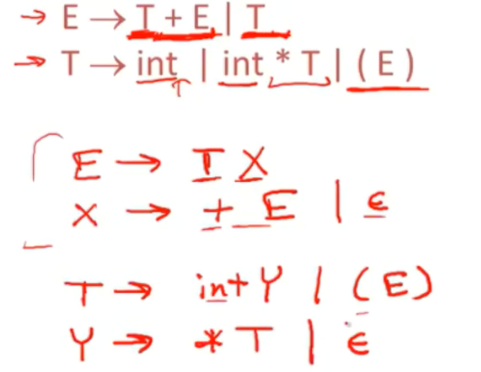 → E → T + E | T
→ T → int | int * T | ( E )
E → T X
X → + E | ε
T → int Y | ( E )
Y → * T | ε